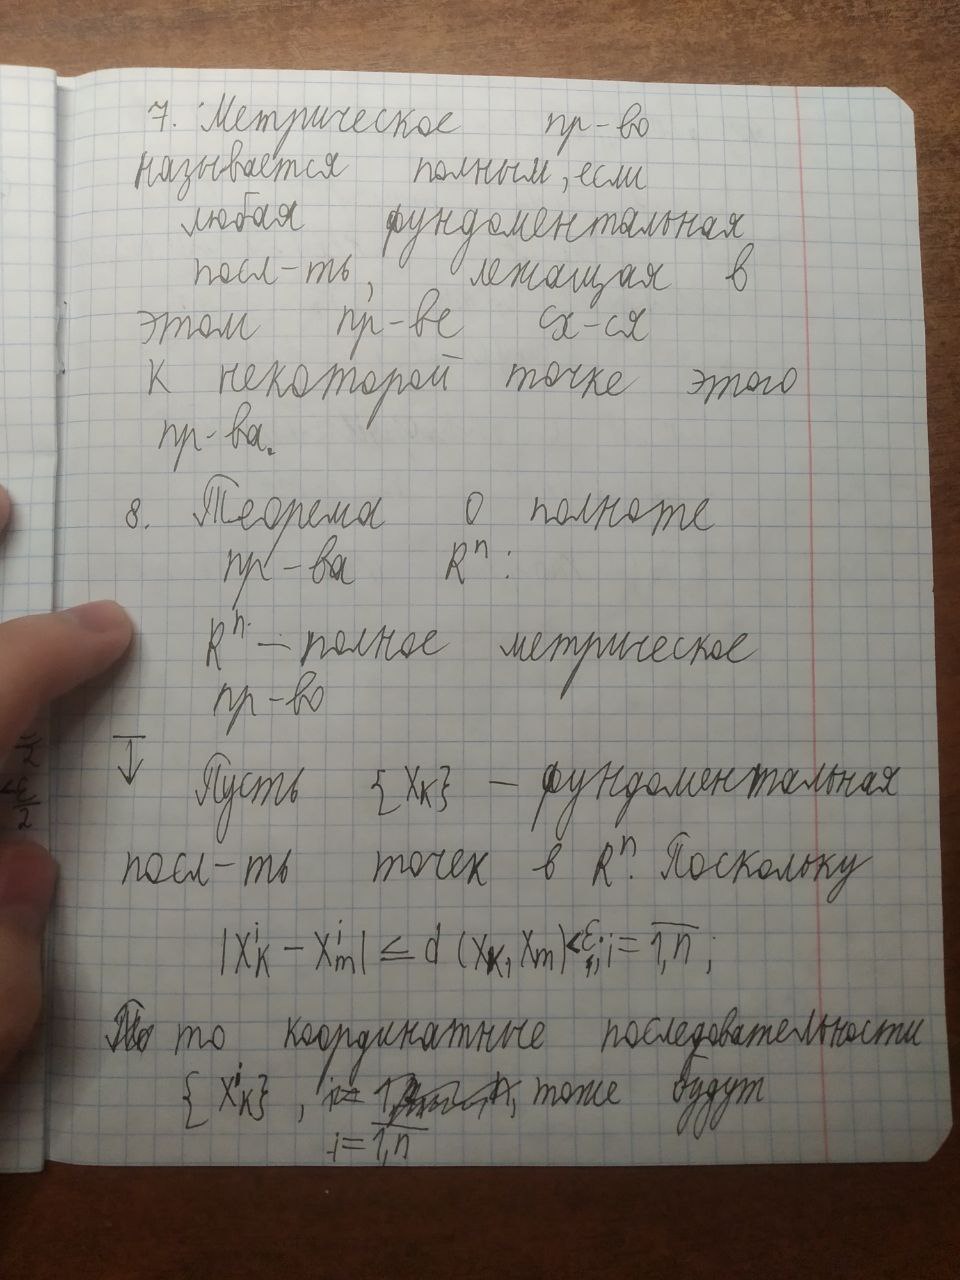 7. Метрическое пр-во
называется полным, если
любая фундоментальная
посл-ть, лежащая в
этом пр-ве сх-ся
к некоторой точке этого
пр-ва.
8. Теорема о полноте
пр-ва Rⁿ:
Rⁿ - полное метрическое
пр-во
Пусть {xₖ} - фундоментальная
посл-ть точек в Rⁿ. Поскольку
|xₖⁱ - xₘⁱ| ≤ d (xₖ, xₘ) < ε, i = 1,n ;
то координатные последовательности
{xₖⁱ}, тоже будут
i = 1,n